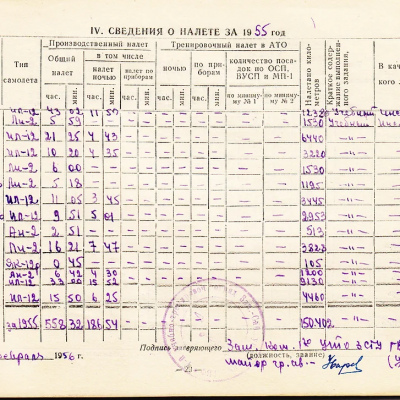 IV. СВЕДЕНИЯ О НАЛЕТЕ ЗА 1955 год
Производственный налет
Тренировочный налет в АТО
Тип самолета
Общий налет
в том числе
налет ночью
налет по приборам
ночью
по приборам
количество посадок по ОСП, ВУСП и МП-1
по минимуму № 1
по минимуму № 2
Налетано километров
Краткое содержание выполненного задания
час. мин. час. мин. час. мин. час. мин. час. мин.
Ил-12 43 02 11 50 — — — — — — — — Учебный
Ли-2 5 59 — — — — — — — — — — 1530 Учебный
Ил-12 21 25 4 43 — — — — — — — — 6440 —"—
Ил-12 10 20 4 35 — — — — — — — — 3220 —"—
Ли-2 6 00 — — — — — — — — — — 1530 —"—
Ли-2 5 18 — — — — — — — — — — 1195 —"—
Ил-12 11 05 3 45 — — — — — — — — 3445 —"—
Ил-12 9 51 5 01 — — — — — — — — 2953 —"—
Ан-2 2 51 — — — — — — — — — — 513 —"—
Ли-2 16 21 7 47 — — — — — — — — 3823 —"—
0 45 — — — — — — — — — — 105 —"—
6 42 4 30 — — — — — — — — 1200 —"—
Ил-12 15 52 — — — — — — — — 9130 —"—
Ил-12 15 50 6 25 — — — — — — — — 4460 —"—
за 1955 558 32 186 54 — — — — — — — — 150.402 —"—
февраль 1956 г.
Подпись заверяющего
Зам. Ком. УТО
(должность, звание)
майор
— 23 —